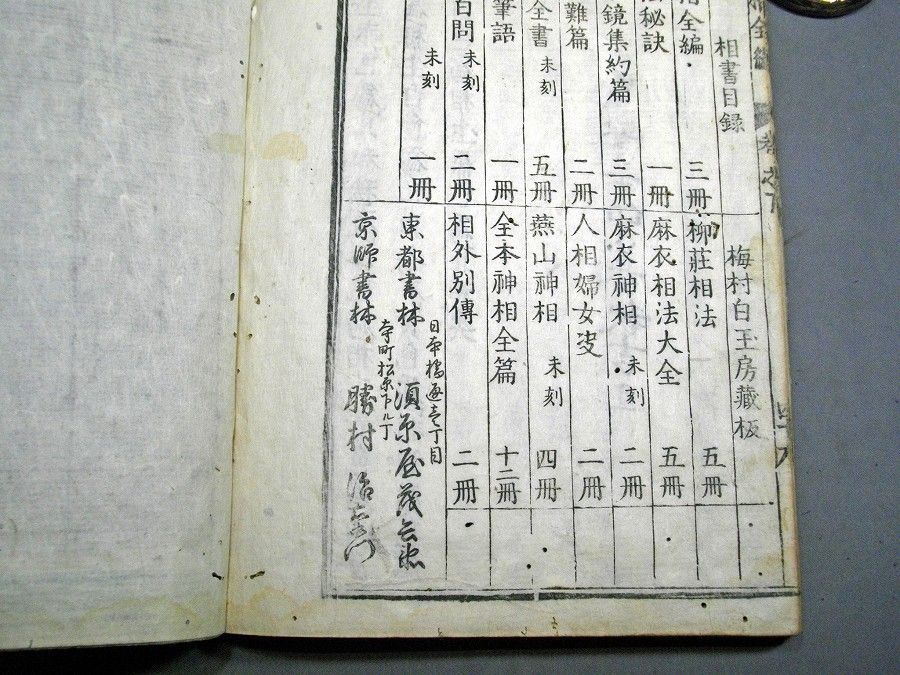 相書目録
梅村白玉房藏板
全編
三冊
柳莊相法
五冊
秘訣
一冊
麻衣相法大全
五冊
鏡集約篇
三冊
麻衣神相
未刻
二冊
難篇
二冊
人相婦女㚇
二冊
全書
未刻
五冊
燕山神相
未刻
四冊
筆語
一冊
全本神相全篇
十二冊
百問
未刻
二冊
相外別傳
二冊
未刻
一冊
日本橋通壱丁目
東都書林
須原屋茂兵衛
寺町松原下ル丁
京師書林
勝村治右衛門